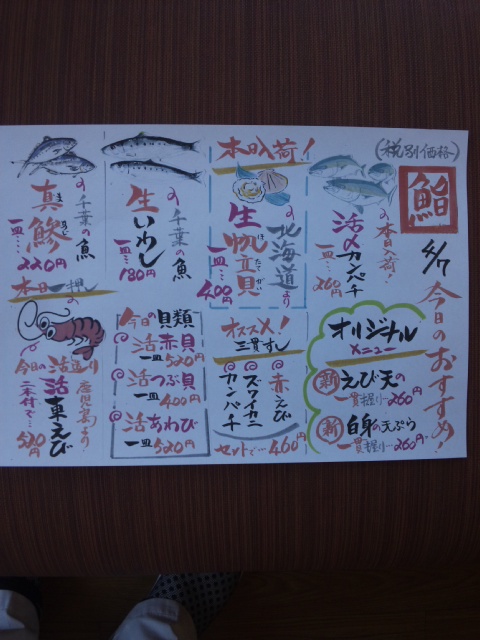 (税別価格)
鮨
6/7 今日のおすすめ!
本日入荷!
活〆カンパチ
一皿…260円
本日入荷!
北海道より
生帆立貝
ほたてがい
一皿…400円
千葉の魚
生いわし
一皿…180円
千葉の魚
真鯵
まあじ
一皿…220円
オリジナル
メニュー
新 えび天の
一貫握り…260円
新 白身の天ぷら
一貫握り…260円
オススメ!
三貫すし
赤えび
ズワイカニ
カンパチ
セットで…460円
今日の貝類
活赤貝
一皿520円
活つぶ貝
一皿400円
活あわび
一皿520円
本日一押し
鹿児島より
今日の活造り
活車えび
二本付で…520円